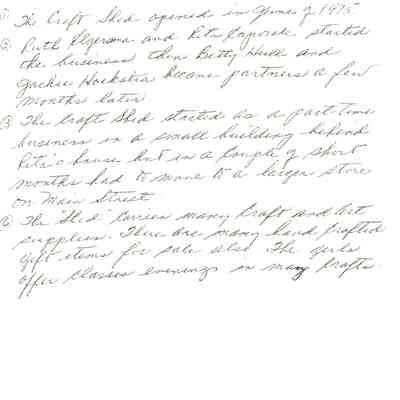 ① The Craft Shed opened in June of 1975
② Ruth Elgersma and Rita started
the business then Betty Hull and
Jackie Hoekstra became partners a few
months later.
③ The Craft Shed started as a part-time
business in a small building behind
Rita's house but in a couple of short
months had to move to a larger store
on Main Street.
The "Shed" carries many craft and art
supplies. There are many hand crafted
gift items for sale also. The girls
offer classes evenings in many crafts.